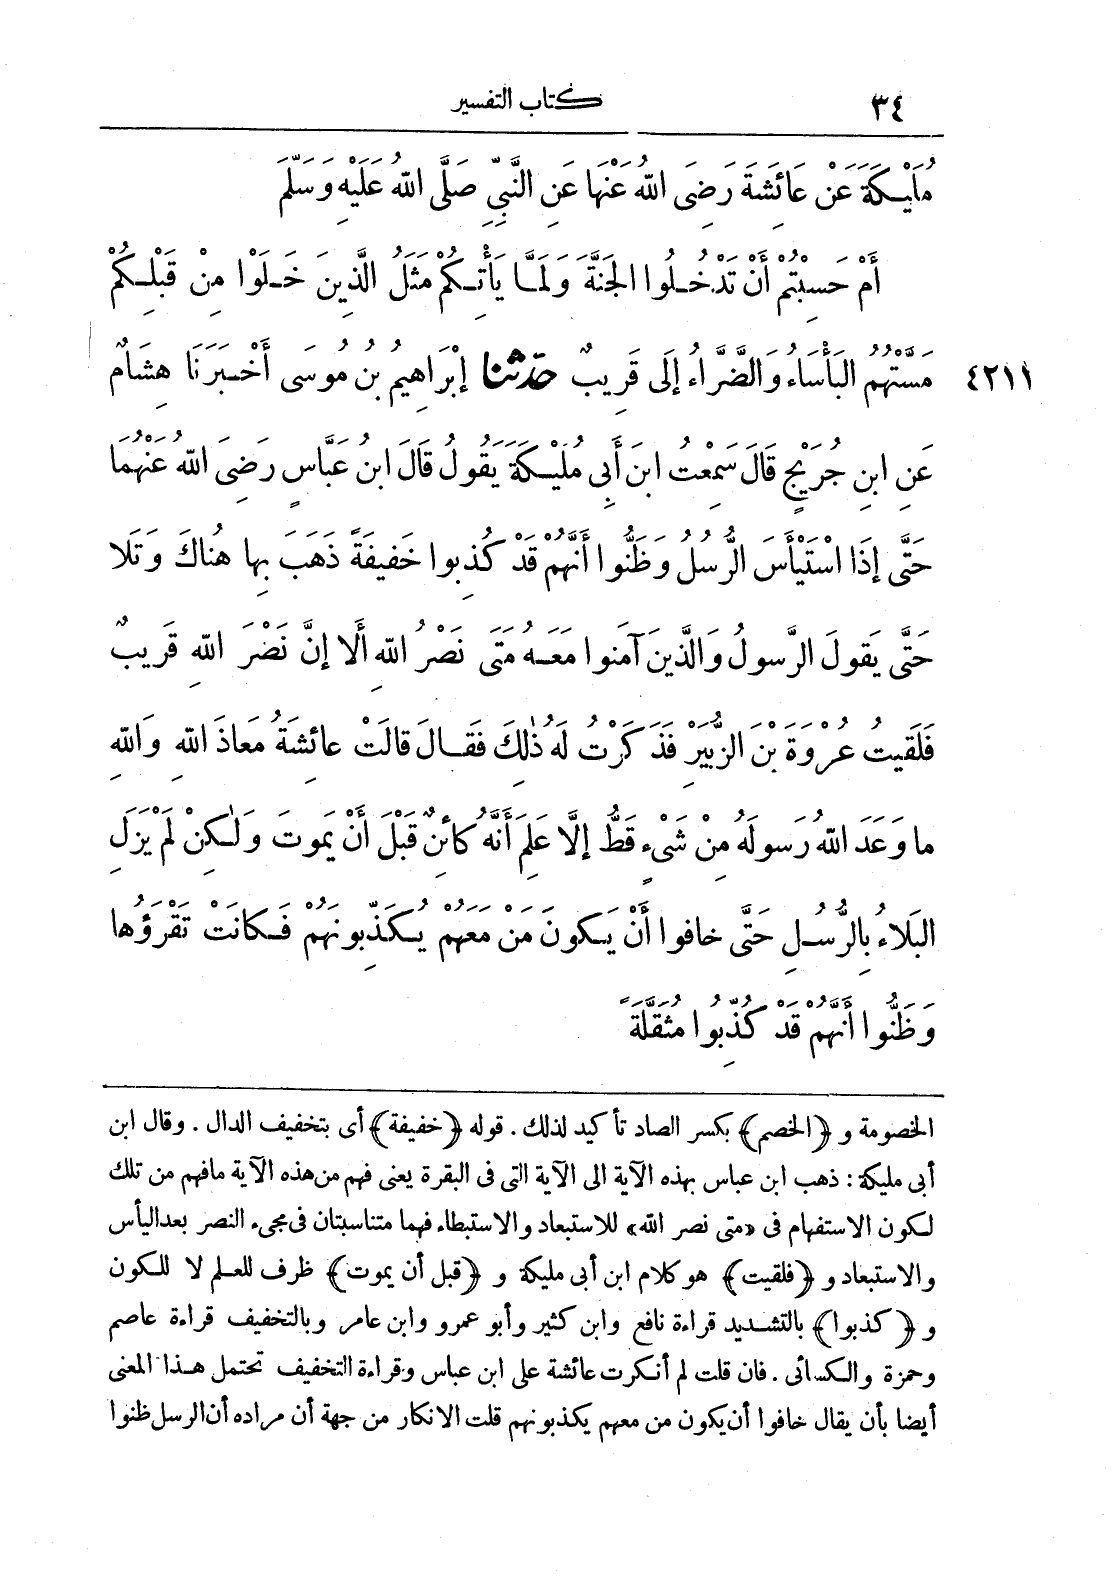 ٣٤
كتاب التفسير
مُلَيْكَةَ عَنْ عَائِشَةَ رَضِىَ اللهُ عَنْهَا عَنِ النَّبِيِّ صَلَّى اللهُ عَلَيْهِ وَسَلَّمَ
أَمْ حَسِبْتُمْ أَنْ تَدْخُلُوا الجَنَّةَ وَلَمَّا يَأْتِكُمْ مَثَلُ الَّذِينَ خَلَوْا مِنْ قَبْلِكُمْ
مَسَّتْهُمُ البَأْسَاءُ وَالضَّرَّاءُ إِلَى قَرِيبٌ حَدَّثَنَا إِبْرَاهِيمُ بنُ مُوسَى أَخْبَرَنَا هِشَامٌ
٤٢١١
عَنِ ابنِ جُرَيْجٍ قَالَ سَمِعْتُ ابنَ أَبِى مُلَيْكَةَ يَقُولُ قَالَ ابنُ عَبَّاسٍ رَضِىَ اللهُ عَنْهُمَا
حَتَّى إِذَا اسْتَيْأَسَ الرُّسُلُ وَظَنُّوا أَنَّهُمْ قَدْ كُذِبُوا خَفِيفَةً ذَهَبَ بِها هُناكَ وَتَلا
حَتَّى يَقُولَ الرَّسولُ وَالَّذينَ آمَنوا مَعَهُ مَتَى نَصْرُ اللهِ أَلا إِنَّ نَصْرَ اللهِ قَرِيبٌ
فَلَقيتُ عُرْوَةَ بْنَ الزُّبَيْرِ فَذَكَرْتُ لَهُ ذٰلِكَ فقَالَ قالَتْ عائِشَةُ مَعَاذَ اللهِ وَاللهِ
ما وَعَدَ اللهُ رَسولَهُ مِنْ شَىْءٍ قَطُّ إِلَّا عَلِمَ أَنَّهُ كائِنٌ قَبْلَ أَنْ يَموتَ وَلٰكِنْ لَمْ يَزَلِ
البَلَاءُ بِالرُّسُلِ حَتَّى خافوا أَنْ يَكونَ مَنْ مَعَهُمْ يُكَذِّبونَهُمْ فَكانَتْ تَقْرَؤُها
وَظَنُّوا أَنَّهُمْ قَدْ كُذِّبُوا مُثَقَّلَةً
الخصومة و ﴿الخصم﴾ بكسر الصاد تأكيد لذلك. قوله ﴿خفيفة﴾ أى بتخفيف الدال. وقال ابن
أبى مليكة: ذهب ابن عباس بهذه الآية الى الآية التى فى البقرة يعنى فهم من هذه الآية مافهم من تلك
لكون الاستفهام فى «متى نصر الله» للاستبعاد والاستبطاء فهما متناسبتان فى مجىء النصر بعد اليأس
والاستبعاد و ﴿فلقيت﴾ هو كلام ابن أبى مليكة و ﴿قبل أن يموت﴾ ظرف للعلم لا للكون
و ﴿كذبوا﴾ بالتشديد قراءة نافع وابن كثير وأبو عمرو وابن عامر وبالتخفيف قراءة عاصم
وحمزة والكسائى. فان قلت لم أنكرت عائشة على ابن عباس وقراءة التخفيف تحتمل هذا المعنى
أيضا بأن يقال خافوا أن يكون من معهم يكذبونهم قلت الانكار من جهة أن مراده أن الرسل ظنوا